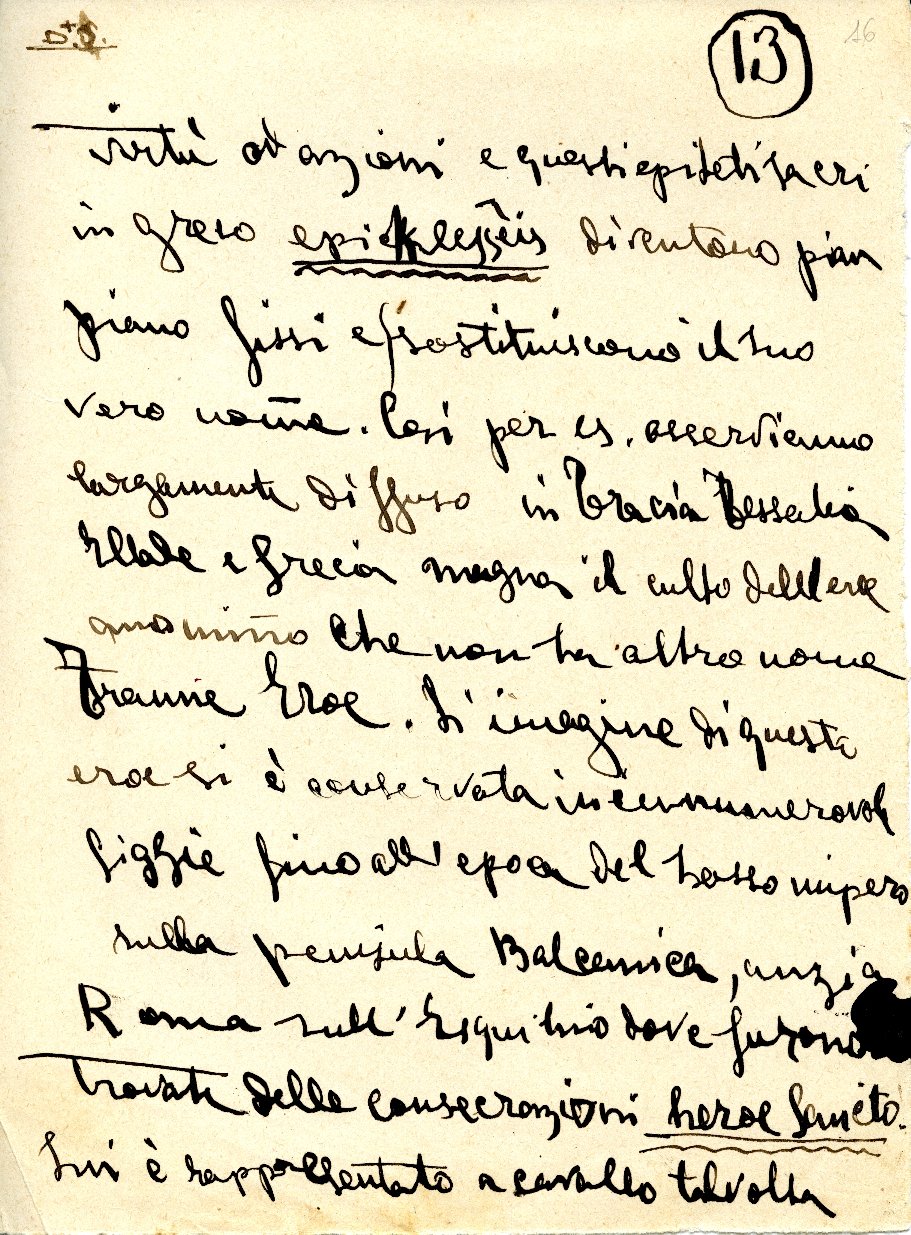 D+S.
13
16
virtù od azioni e questi epiteti sacri
in greco epikleseis diventano pian
piano fissi e sostituiscono il suo
vero nome. Così per es. osserviamo
largamente diffuso in Tracia Tessalia
Ellade e Grecia magna il culto dell'eroe
anonimo che non ha altro nome
tranne Eroe. L'imagine di questo
eroe si è conservata in innumerevoli
figgie fino all'epoca del basso impero
sulla penisula Balcanica, anzi a
Roma sull'Esquilino dove furono
trovate delle consecrazioni heroe Sancto.
Lui è rappresentato a cavallo talvolta